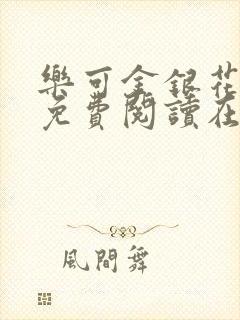 樂可金銀花
免費閱讀在
風間舞